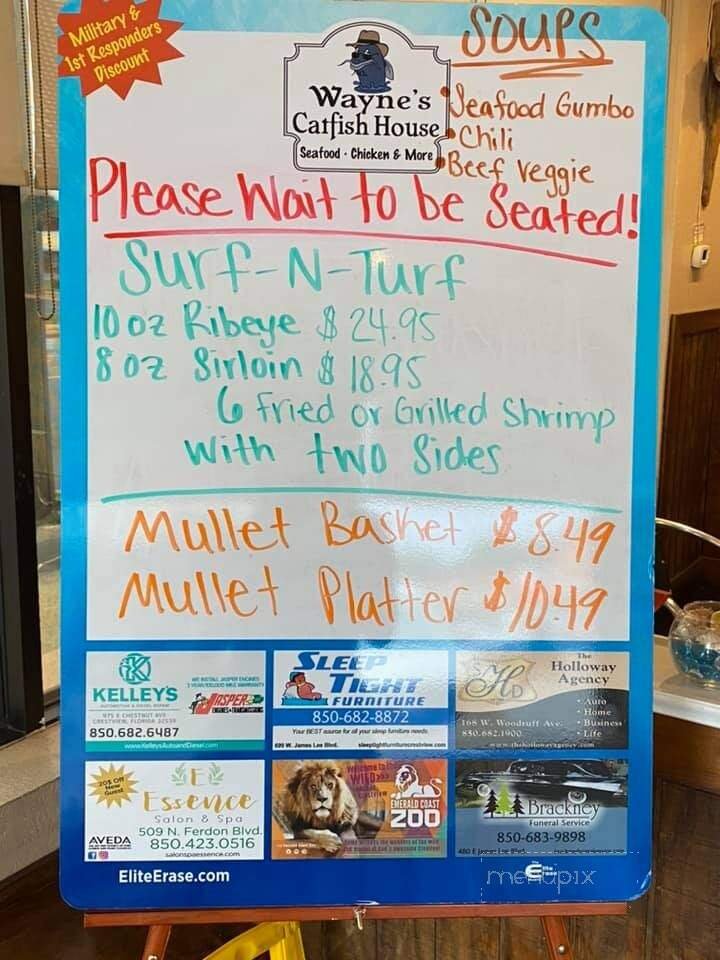 Military &
1st Responders
Discount
Wayne's
Catfish House
Seafood · Chicken & More
SOUPS
Seafood Gumbo
Chili
Beef Veggie
Please Wait to be Seated!
Surf-N-Turf
10 oz Ribeye $24.95
8 oz Sirloin $18.95
6 fried or Grilled Shrimp
with two Sides
Mullet Basket $8.49
Mullet Platter $10.49
KELLEY'S
AUTOMOTIVE & DIESEL REPAIR
WE INSTALL JASPER ENGINES
JASPER
975 E CHESTNUT AVE
CRESTVIEW, FLORIDA 32539
850.682.6487
www.KelleysAutoandDiesel.com
SLEEP
TIGHT
FURNITURE
850-682-8872
Your BEST source for all your sleep furniture needs.
699 W. James Lee Blvd. sleeptightfurniturecrestview.com
SHD
The
Holloway
Agency
• Auto
• Home
• Business
• Life
168 W. Woodruff Ave.
850.682.1900
www.thehollowayagency.com
20% Off
New
Guest
E
Essence
Salon & Spa
AVEDA
509 N. Ferdon Blvd.
850.423.0516
salonspaessence.com
EMERALD COAST
ZOO
Brackney
Funeral Service
850-683-9898
480 E James Lee Blvd.
EliteErase.com
menupix